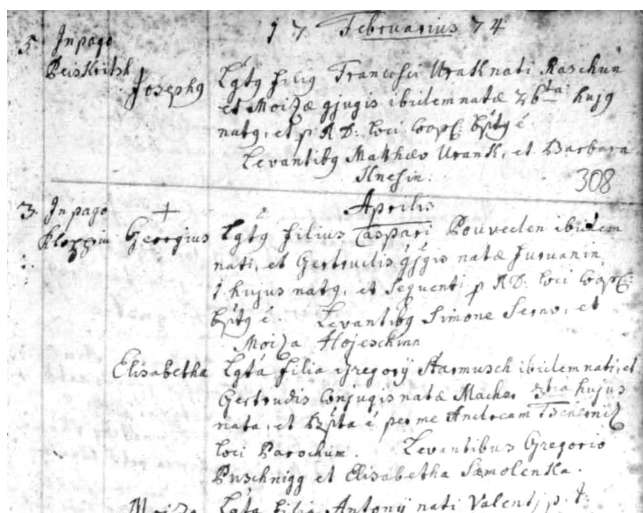 17 Februarius 74
5. In pago
Josephus Lgtg filig Francisci Urank nati Raschun
et Moizæ gjugis ibidem natæ hujg
natg, et p R D: loci Coop: bptg ē.
Levantibg Mathæo Urank, et Barbara
Knesin.
308
Aprilis
3. In pago
Georgius Lgtg filius Caspari ibidem
nati, et Gertrudis gjgis natæ
1 hujus natg, et sequenti p R D: loci Coop:
bptg ē. Levantibg Simone et
Moiza
Elisabetha Lgta filia Gregorÿ Starmusch ibidem nati, et
Gertrudis Conjugis natæ Macher hujus
nata, et bpta ē per me Andream
loci Parochum. Levantibus Gregorio
Puschnigg et Elisabetha Samolenka.
Moiza Lgta filia Antonÿ nati Valent, p. t.